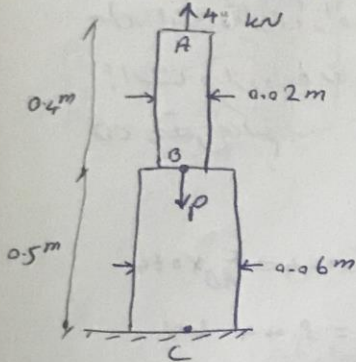 4 kN
A
0.4 m
0.02 m
B
P
0.5 m
0.06 m
C